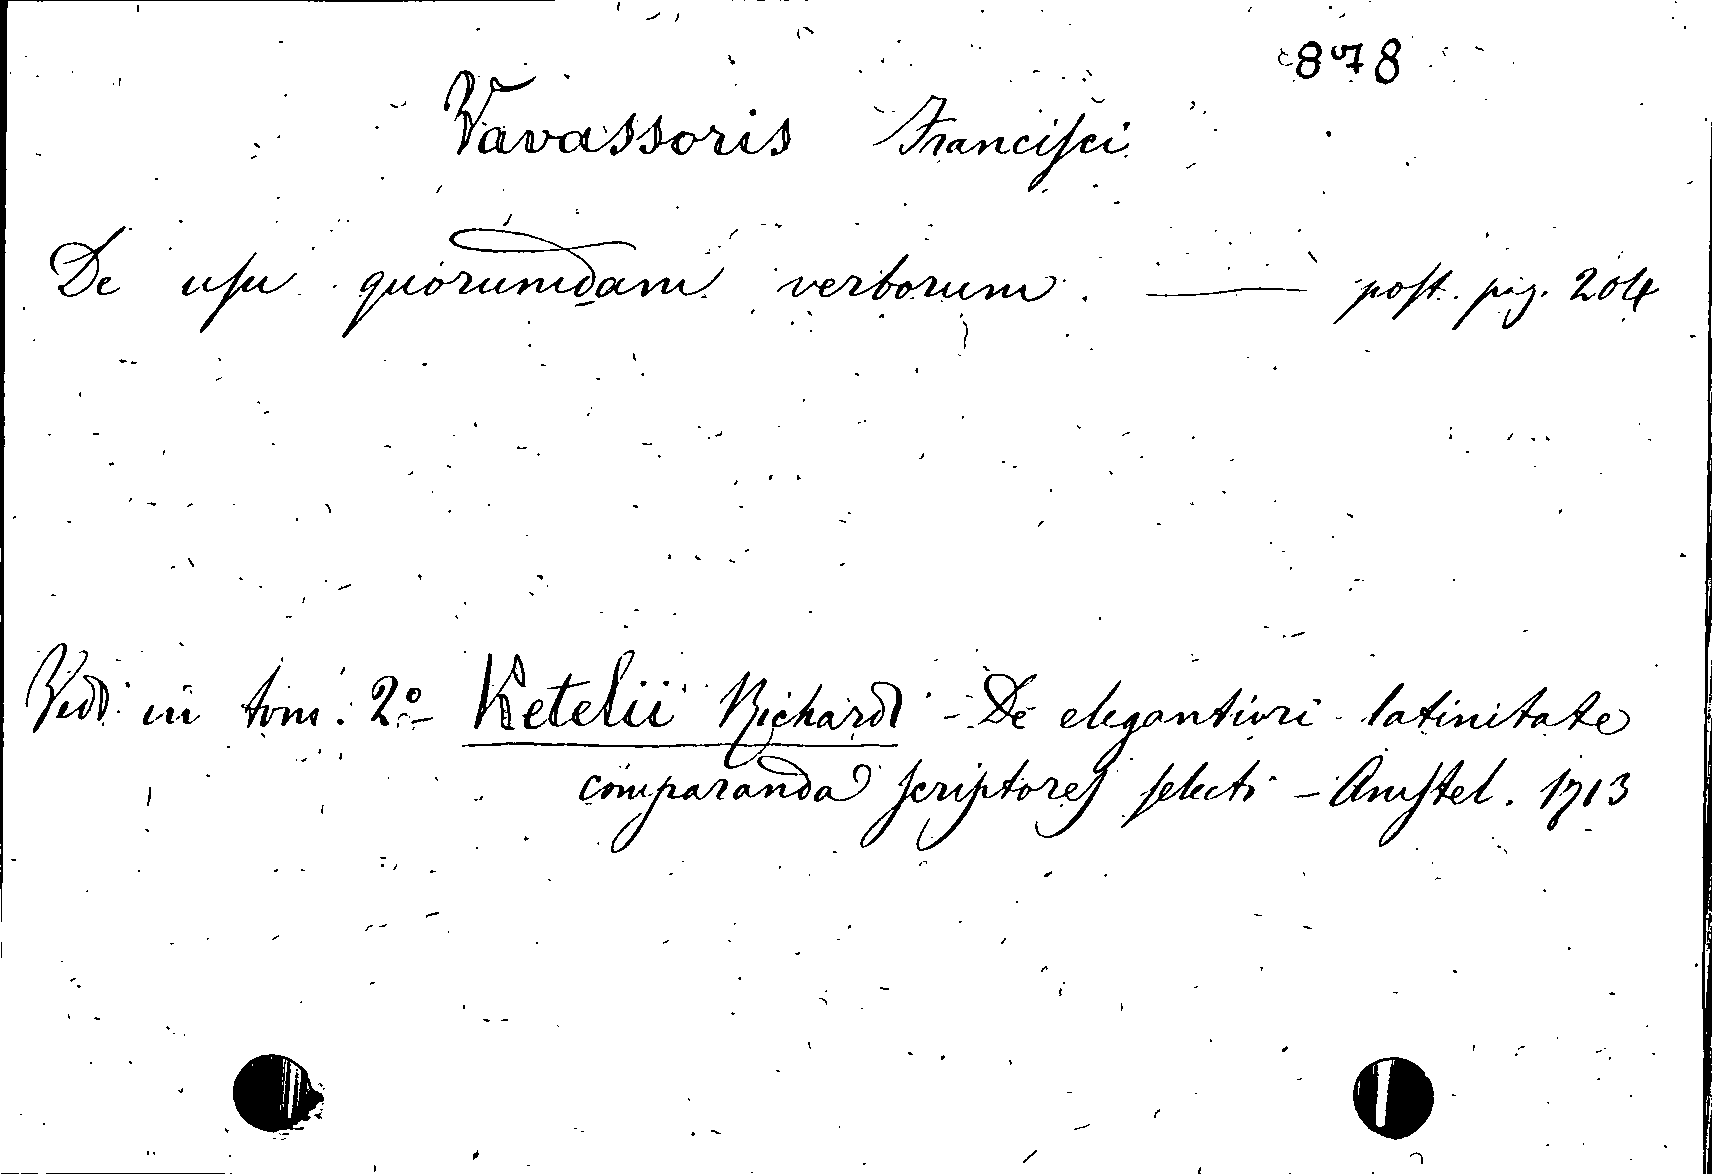 878
Vavassoris Francisci
De usu quorumdam verborum. — post. pag. 204
Vedi in tom. 2º - Ketelii Richardi - De elegantiori latinitate
comparanda scriptores selecti - Amstel. 1713